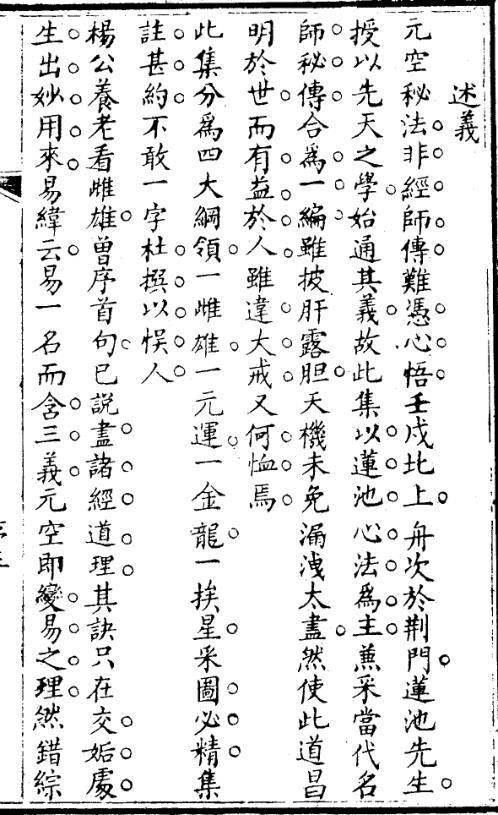 述義
元空秘法非經師傳難憑心悟壬戌北上舟次於荆門蓮池先生
授以先天之學始通其義故此集以蓮池心法為主兼采當代名
師秘傳合為一編雖披肝露胆天機未免漏洩太盡然使此道昌
明於世而有益於人雖違大戒又何恤焉
此集分為四大綱領一雌雄一元運一金龍一挨星采圖必精集
註甚約不敢一字杜撰以悮人
楊公養老看雌雄曾序首句已說盡諸經道理其訣只在交姤處
生出妙用來易緯云易一名而含三義元空即變易之理然錯綜